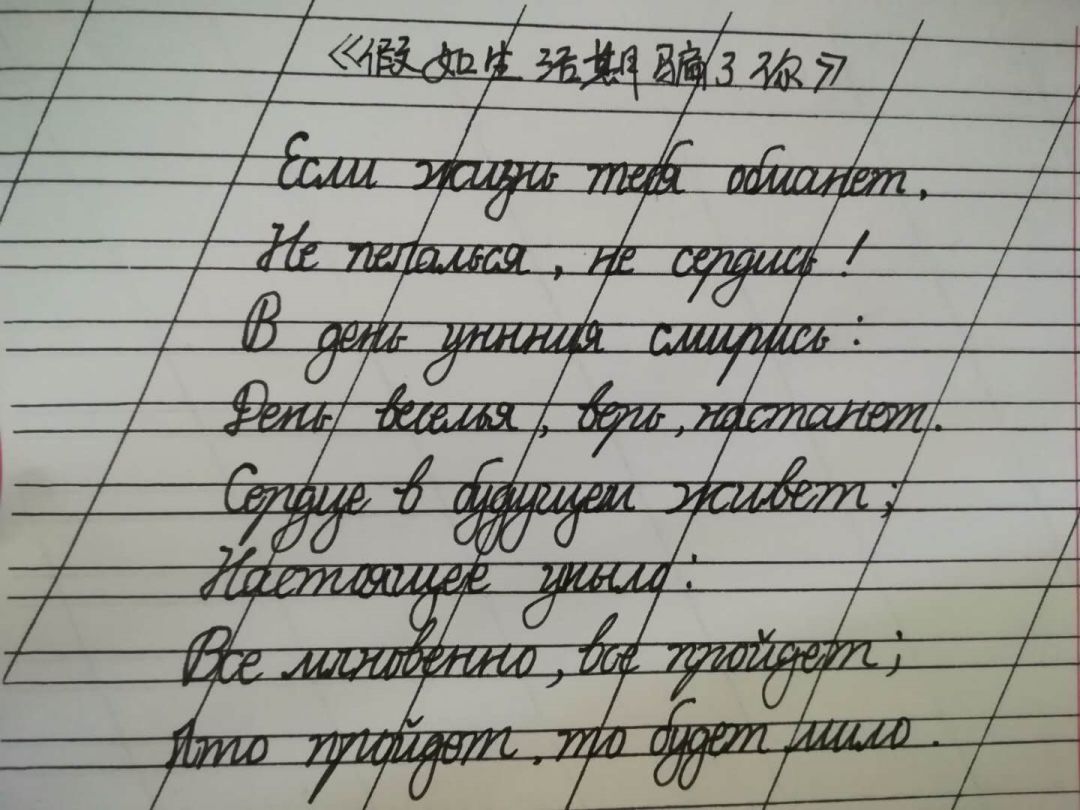 《假如生活期骗了你》
Если жизнь тебя обманет,
Не печалься, не сердись!
В день уныния смирись:
День веселья, верь, настанет.
Сердце в будущем живет;
Настоящее уныло:
Все мгновенно, все пройдет;
Что пройдет, то будет мило.